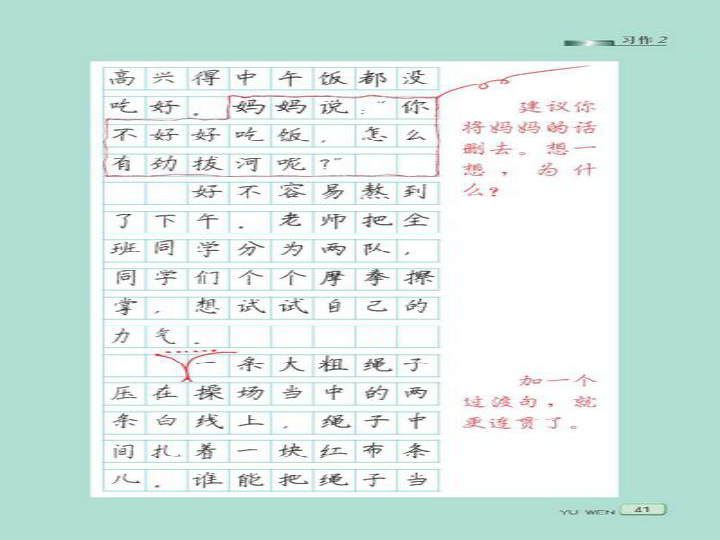 习作2
高兴得中午饭都没
吃好。妈妈说:“你
不好好吃饭，怎么
有劲拔河呢?”
好不容易熬到
了下午。老师把全
班同学分为两队，
同学们个个摩拳擦
掌，想试试自己的
力气。
一条大粗绳子
压在操场当中的两
条白线上，绳子中
间扎着一块红布条
儿。谁能把绳子当
建议你
将妈妈的话
删去。想一
想，为什
么?
加一个
过渡句，就
更连贯了。
YU WEN 41